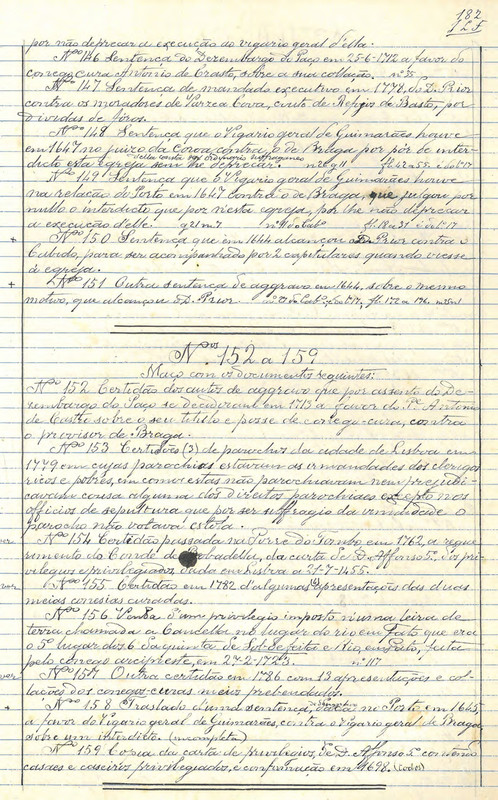 182
125
por não deprecar a execução do vigario geral d'elle.
Nº 146 Sentença do Dezembargo do Paço em 25-6-1712 a favor do
conego cura Antonio de Crasto, sobre a sua collação. nº 35
Nº 147 Sentença de mandado executivo em 1778, do D. Prior
contra os moradores de Correa Cova, couto de Refojos de Basto, por
dividas de fóros.
Nº 148 Sentença que o Vigario geral de Guimarães houve
em 1647 no juizo da Corôa contra o de Braga por pôr de inter-
dicto esta egreja sem lhe deprecar.
Nº 149 Sentença que o Vigario geral de Guimarães houve
na relação do Porto em 1647 contra o de Braga, que julgou por
nullo o interdicto que poz n'esta egreja, por lhe não deprecar
a execução d'elle.
+ Nº 150 Sentença que em 1644 alcançou o D. Prior contra o
Cabido, para ser acompanhado por 2 capitulares quando viesse
á egreja.
+ Nº 151 Outra sentença de aggravo em 1644, sobre o mesmo
motivo, que alcançou o D. Prior. fl. 172 a 176
Nos 152 a 159
Maço com os documentos seguintes:
Nº 152 Certidão dos autos de aggravo que por assento do De-
sembargo do Paço se decediram em 1713 a favor do Pe Antonio
de Castro sobre o seu titulo e posse de conego-cura, contra
o provisor de Braga.
Nº 153 Certidões (3) de parochos da cidade de Lisboa em
1779 em cujas parochias estavam as irmandades dos clerigos
ricos e pobres, em como estas não parochiavam nem prejudi-
cavam cousa alguma dos direitos parochiaes excepto nos
officios de sepultura que por suffragio da irmandade o
parocho não levava estola.
Nº 154 Certidão passada na Torre do Tombo em 1762, a reque-
rimento do Conde de da carta de D. Affonso 5º dos pri-
vilegios e privilegiados, dada em Lisboa a 21-7-1455.
Nº 155 Certidão em 1782 d'algumas apresentações das duas
meias conesias curadas.
Nº 156 Venda d'um privilegio imposto n'uma leira de
terra chamada a Candella no lugar do rio em Fato que era
o 5º lugar dos 6 da quinta de e Rio, em Fato, feita
pelo conego arcipreste, em 27-2-1723. nº 117
Nº 157 Outra certidão em 1786 com 13 apresentações e col-
lações dos conegos-curas meios prebendados.
Nº 158 Traslado d'uma sentença, dada no Porto em 1645
a favor do Vigario geral de Guimarães, contra o Vigario geral de Braga,
sobre um interdicto. (incompleta)
Nº 159 Copia da carta de privilegios, de D. Affonso 5º contendo
casaes e caseiros privilegiados, e confirmação em 1698.